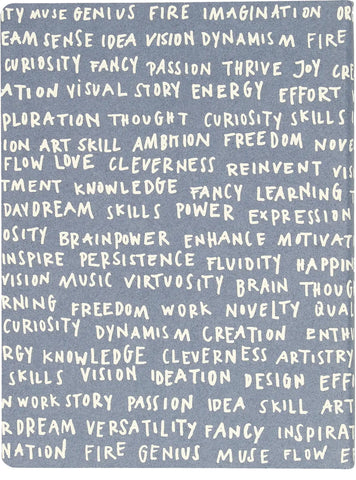 ITY MUSE GENIUS FIRE IMAGINATION OR
EAM SENSE IDEA VISION DYNAMISM FIRE
CURIOSITY FANCY PASSION THRIVE JOY CRE
ATION VISUAL STORY ENERGY EFFORT V
PLORATION THOUGHT CURIOSITY SKILLS I
ION ART SKILL AMBITION FREEDOM NOVE
FLOW LOVE CLEVERNESS REINVENT VIS
TMENT KNOWLEDGE FANCY LEARNING T
DAYDREAM SKILLS POWER EXPRESSION
OSITY BRAINPOWER ENHANCE MOTIVAT
INSPIRE PERSISTENCE FLUIDITY HAPPIN
VISION MUSIC VIRTUOSITY BRAIN THOUG
RNING FREEDOM WORK NOVELTY QUAL
CURIOSITY DYNAMISM CREATION ENTH
RGY KNOWLEDGE CLEVERNESS ARTISTRY
SKILLS VISION IDEATION DESIGN EFF
N WORK STORY PASSION IDEA SKILL ART
R DREAM VERSATILITY FANCY INSPIRAT
NATION FIRE GENIUS MUSE FLOW E